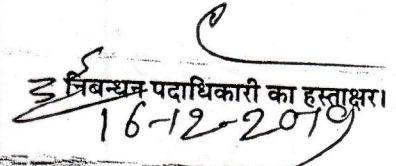 निबन्धन पदाधिकारी का हस्ताक्षर।
16-12-2019